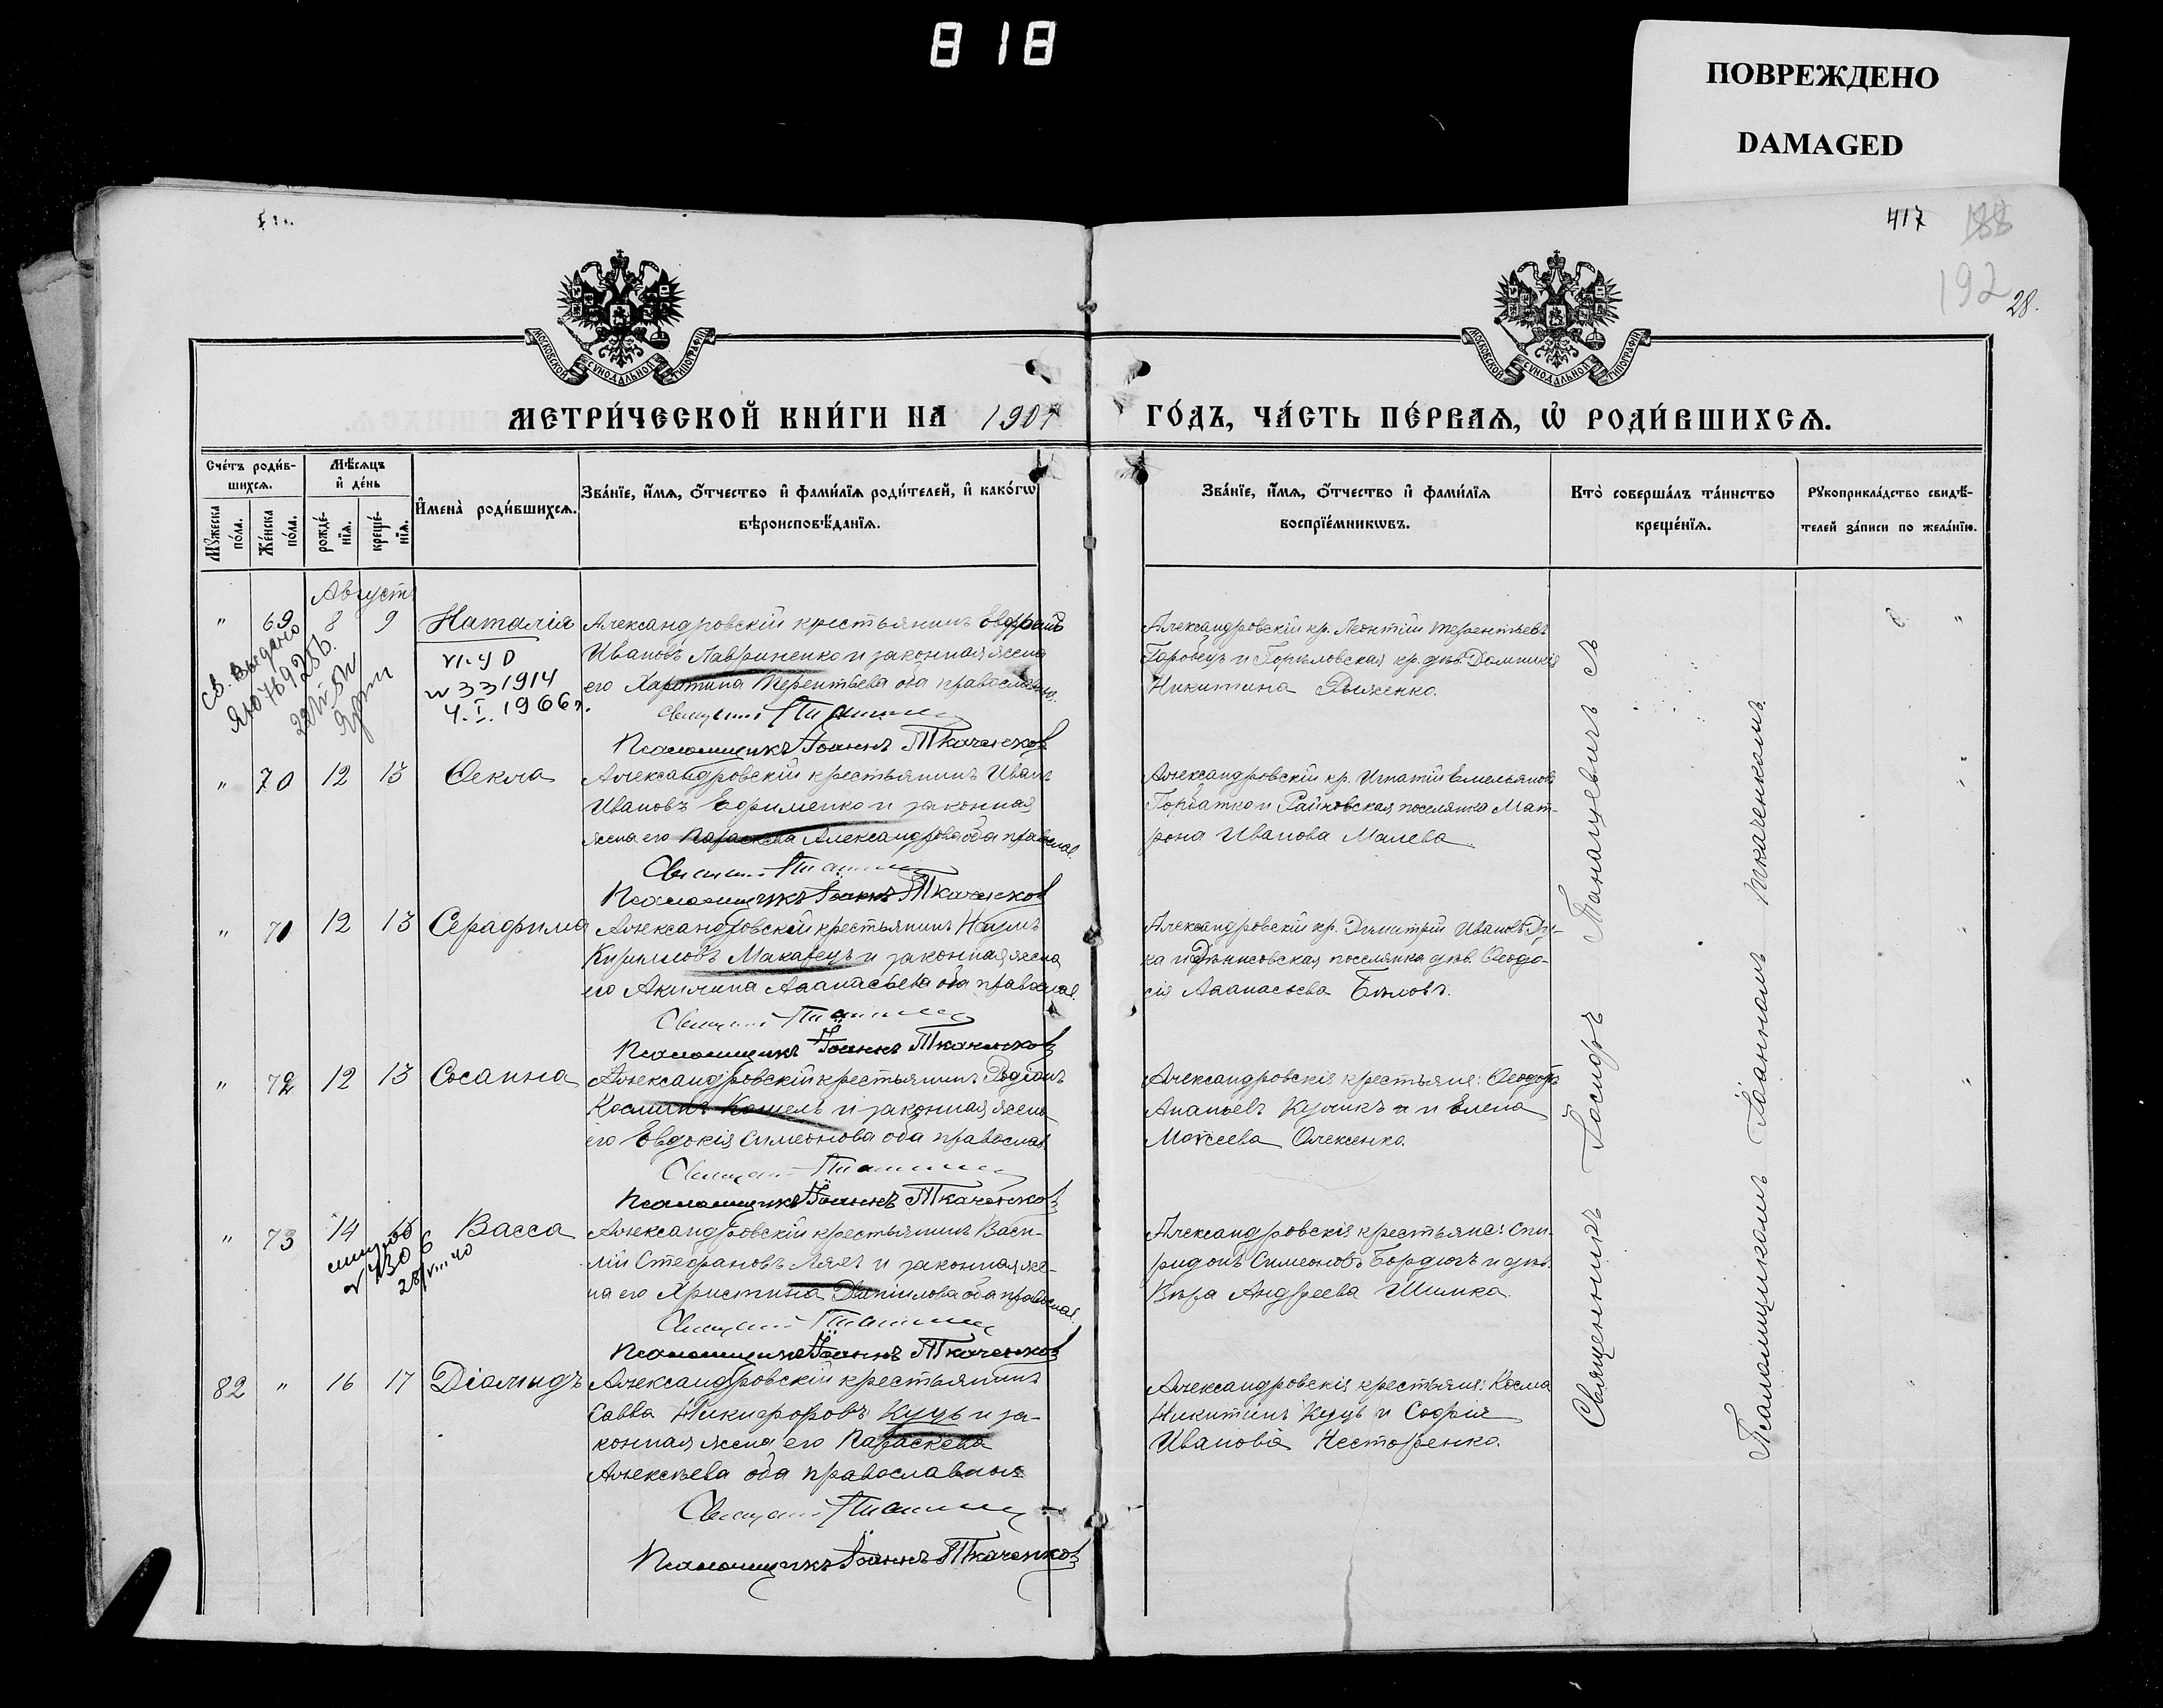 818
ПОВРЕЖДЕНО
DAMAGED
417
188
192
28.
МОСКОВСКОЙ СѴНОДАЛЬНОЙ ТИПОГРАФІИ
МОСКОВСКОЙ СѴНОДАЛЬНОЙ ТИПОГРАФІИ
МЕТРИ́ЧЕСКОЙ КНИ́ГИ НА 1907
ГО́ДЪ, ЧА́СТЬ ПЕ́РВАѦ, Ѽ РОДИ́ВШИХСѦ.
Сче́тъ роди́в-
шихсѧ.
Мꙋжеска по́ла.
Же́нска по́ла.
Мѣ́сѧцъ
и҆ де́нь
рожде́-
нїѧ.
креще́-
нїѧ.
И҆мена̀ роди́вшихсѧ.
Зва́нїе, и҆́мѧ, ѻ҆́тчество и҆ фами́лїѧ роди́телей, и҆ како́гѡ
вѣроисповѣ́данїѧ.
Зва́нїе, и҆́мѧ, ѻ҆́тчество и҆ фами́лїѧ
воспрїе́мникѡвъ.
Кто̀ соверша́лъ та́инство
креще́нїѧ.
Рꙋкоприкла́дство свидѣ́-
телей за́писи по жела́нїю.
Августъ
" 69 8 9 Наталія
Александровскій крестьянинъ
Ивановъ Лавриненко и законная жена
его Харитина Терентьева оба православн.
Св. Выдано
VI-ЧО
№ 331914
4.I.1966г.
Псаломщикъ Іоаннъ Ткаченковъ
Александровскій кр. Леонтій Терентьевъ
Горобецъ и Горѣловская кр. дѣв. Домникія
Никитина Рыженко.
" 70 12 13 Ѳекла
Александровскій крестьянинъ Иванъ
Ивановъ Ефименко и законная
жена его Параскева Александрова оба православ.
Псаломщикъ Іоаннъ Ткаченковъ
Александровскій кр. Игнатій Емельяновъ
Горбатко и Райновская поселянка Мат-
рона Иванова Малева
" 71 12 13 Серафима
Александровскій крестьянинъ Наумъ
Кирилловъ Макарецъ и законная жена
его Акилина Аѳанасьева оба православ.
Псаломщикъ Іоаннъ Ткаченковъ
Александровскій кр. Димитрій Ивановъ Ду-
ка и Денисовская поселянка дѣв. Ѳеодо-
сія Аѳанасьева Бѣловъ.
" 72 12 13 Сосанна
Александровскій крестьянинъ Родіонъ
Косминъ Кошель и законная жена
его Евдокія Симеонова оба православ.
Псаломщикъ Іоаннъ Ткаченковъ
Александровскія крестьяне: Ѳеодоръ
Ананьевъ Куликъ и Елена
Моѵсеева Олексенко.
" 73 14 Васса
28/VIII 40
Александровскій крестьянинъ Васи-
лій Стефановъ Ляхъ и законная же-
на его Христина Даніилова оба православ.
Псаломщикъ Іоаннъ Ткаченковъ
Александровскія крестьяне: Спи-
ридонъ Симеоновъ Бордюгъ и дѣв.
Вѣра Андреева Шимка.
82 " 16 17 Діомидъ
Александровскій крестьянинъ
Савва Никифоровъ Куцъ и за-
конная жена его Параскева
Алексѣева оба православные
Псаломщикъ Іоаннъ Ткаченковъ
Александровскія крестьяне: Косма
Никитинъ Куцъ и Софія
Иванова Несторенко.
Священникъ Іосифъ Танацевичъ съ
Псаломщикомъ Іоанномъ Ткаченкомъ.